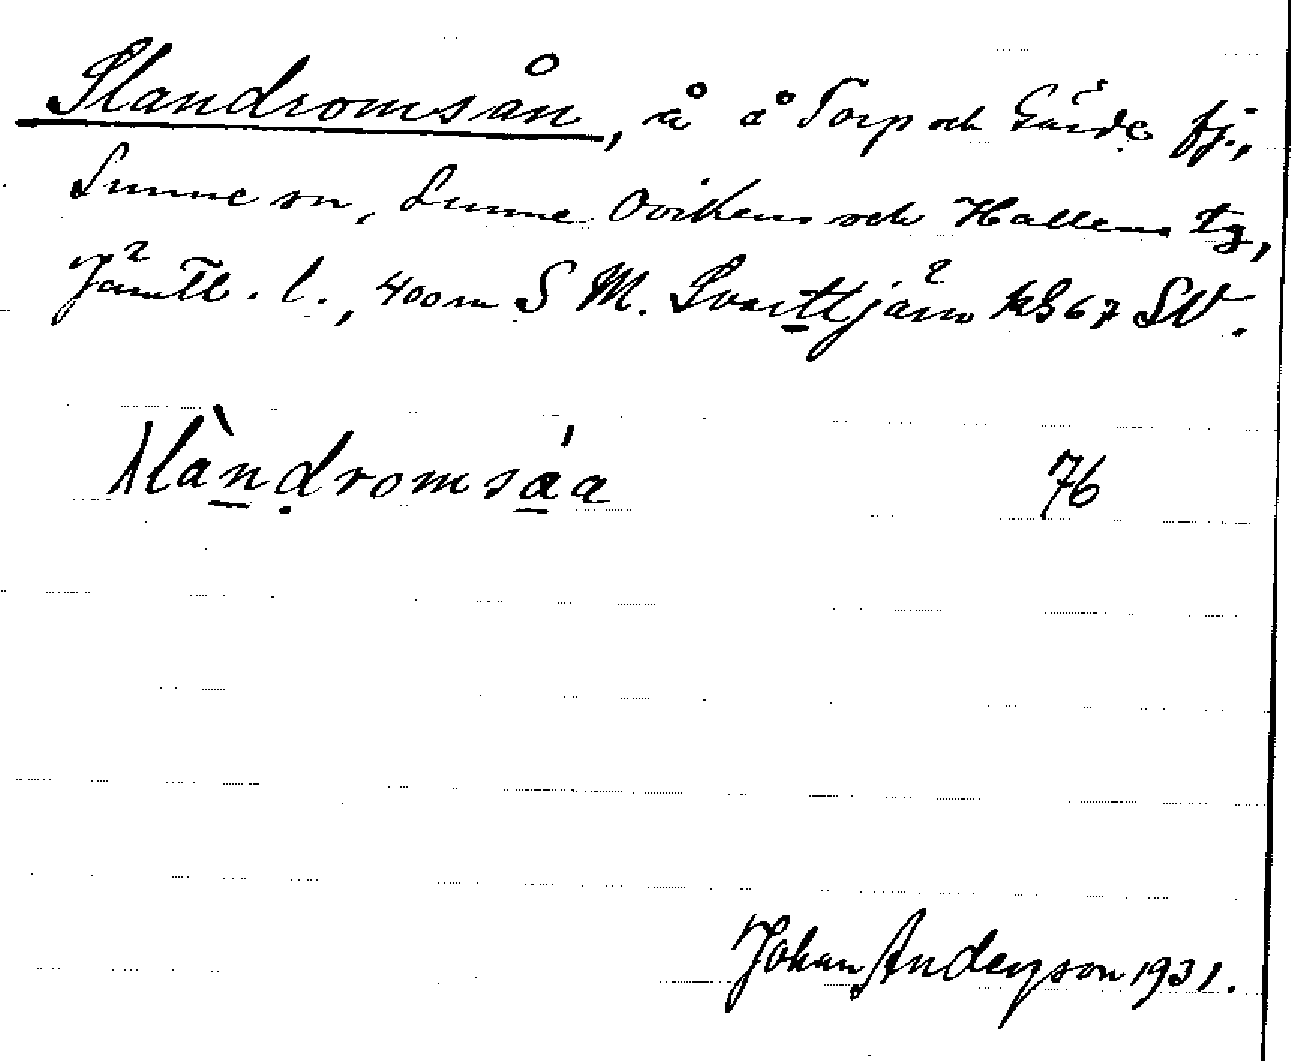 Slandromsån, å å Torp och Gärde fj.,
Sunne sn, Sunne Ovikens och Hallens tg,
Jämtl. l., 400 m S M. Svarttjärn kb 67 SV.
slàndromsáa 76
Johan Anderson 1931.